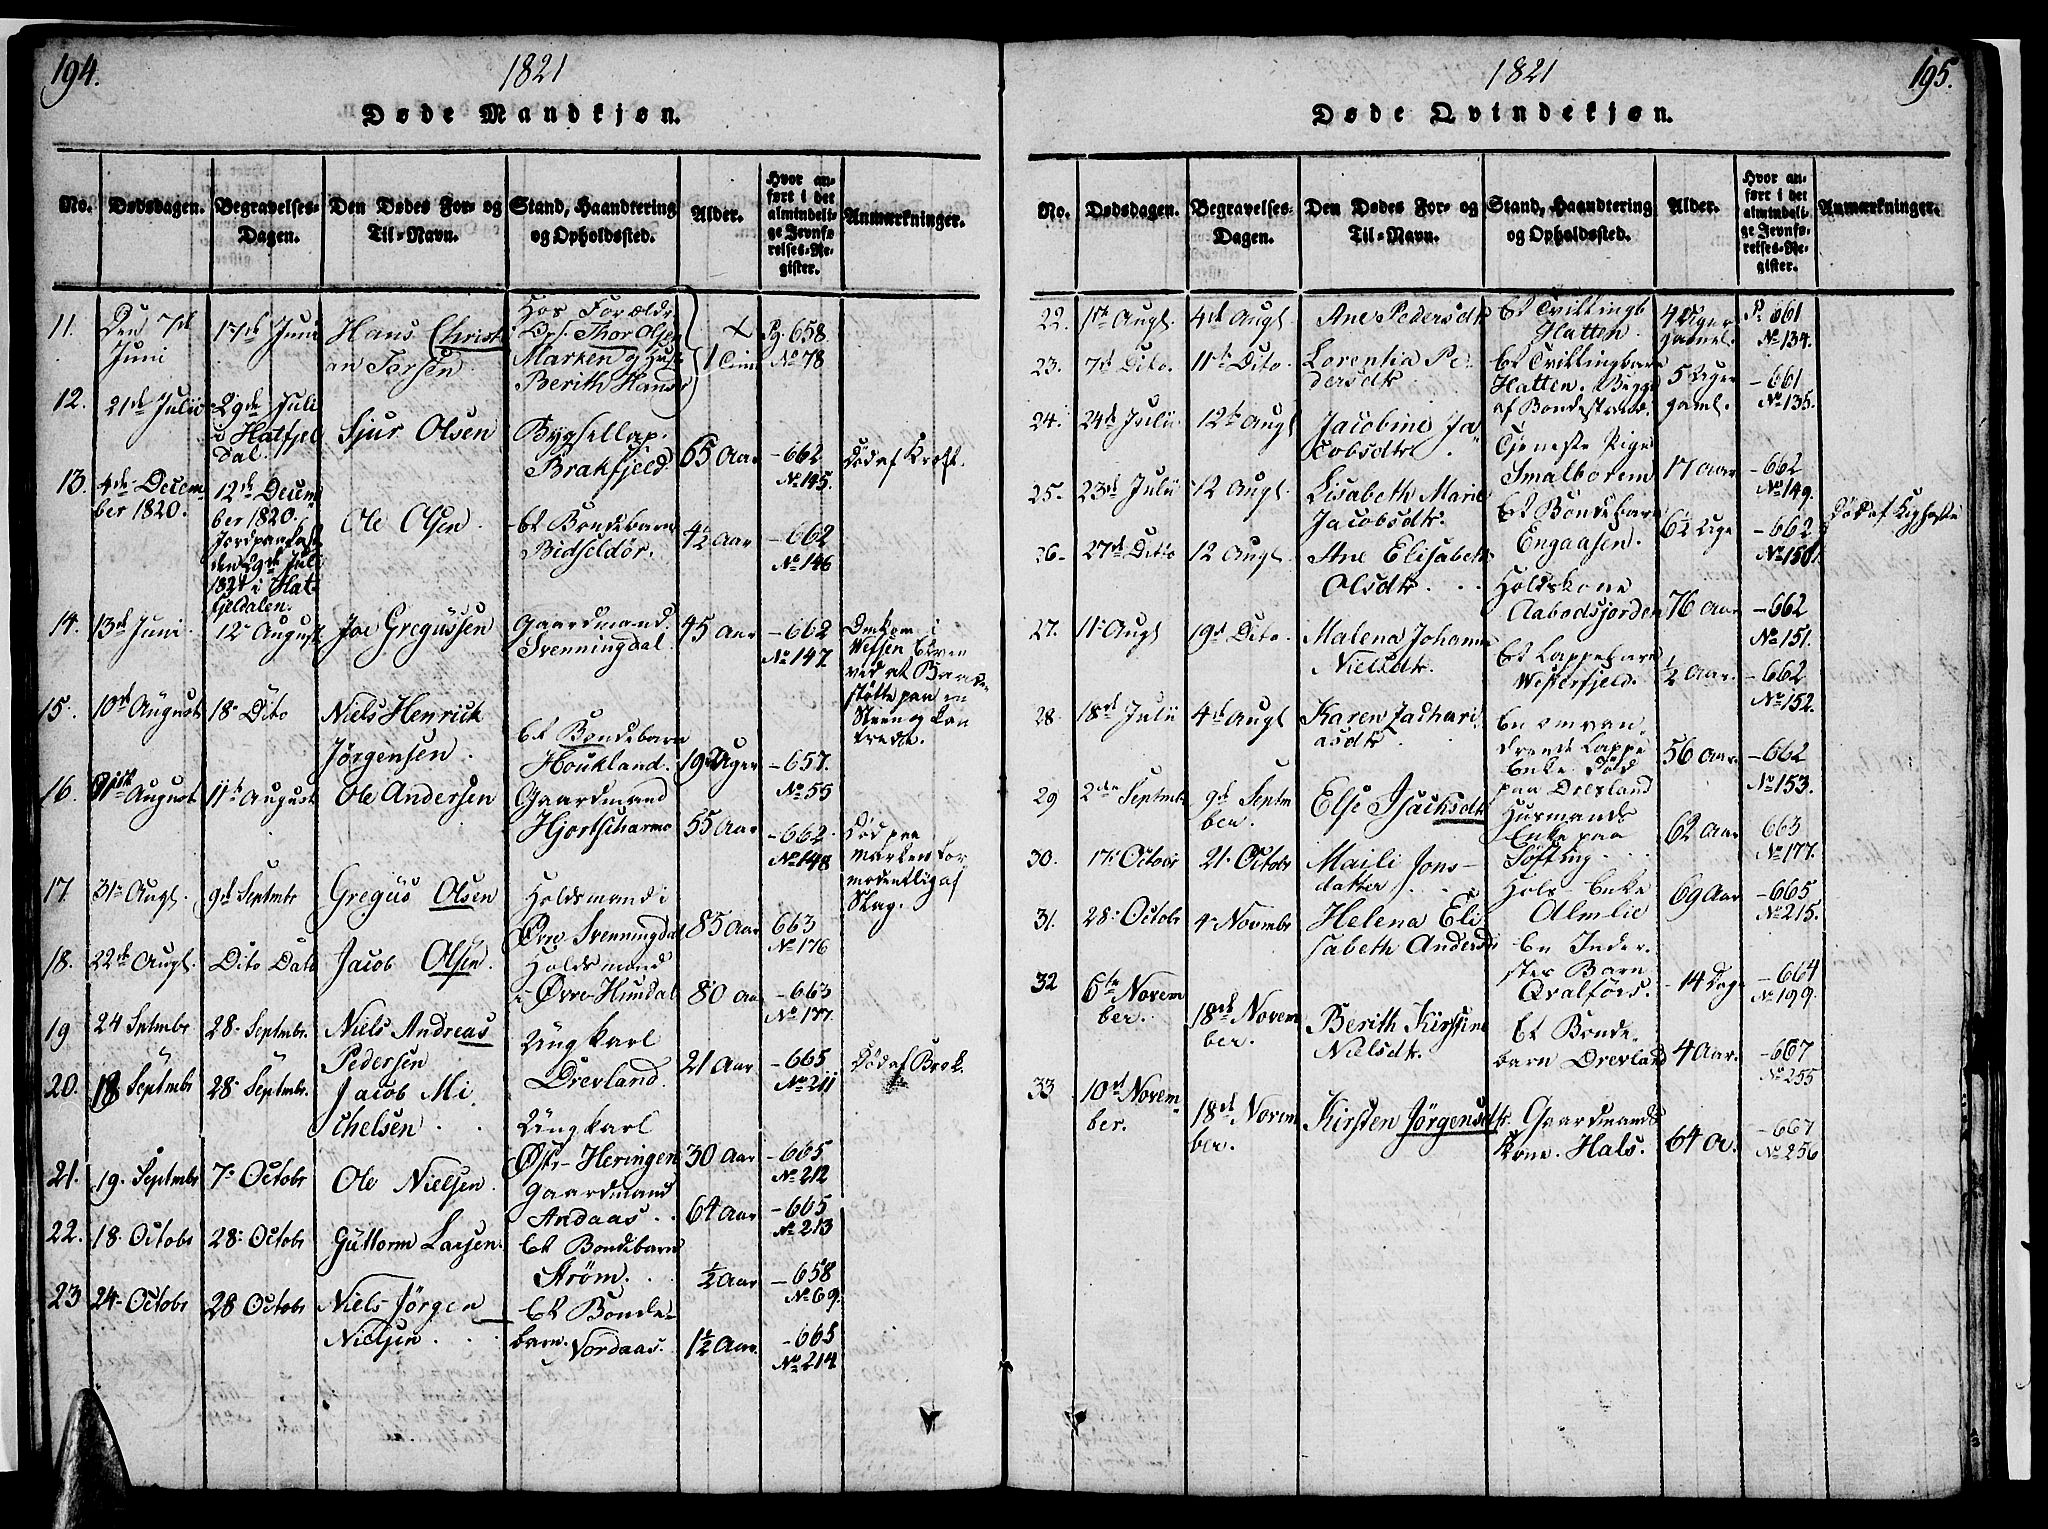 194.
1821
Døde Mandkjøn.
No.
Dødsdagen.
Begravelses-
Dagen.
Den Dødes For- og
Til-Navn.
Stand, Haandtering
og Opholdssted.
Alder.
Hvor an-
ført i det
almindeli-
ge Jevnfø-
relses-Re-
gister.
Anmærkninger.
11.
Den 7de
Juni
17de Juni
Hans Christi
an Torsen
Hos Forældr.
Thor Olsen
Marken og
Berith Hansd
Pg. 658.
No 78
12.
21de Julii
29de Juli
i Hatfjel
dal.
Sjur Olsen
Bygsellap.
Brakfjeld.
65 Aar
- 662
No 145.
Død af Kræft.
13.
4de Decem
ber 1820.
12de Decem
ber 1820.
Jordpaakast
den 29de Juli
1821 i Hat
fjeldalen.
Ole Olsen
Et Bondebarn
Bidseldør.
4½ Aar
- 662
No 146
14.
13de Juni
12- August
Joe Gregussen
Gaardmand
Svenningdal.
45 Aar
- 662
No 147.
Omkom i
Vefsen Elven
ved at
støtte paa en
Steen og kan
trede.
15.
10de August
18- Dito
Niels Henrich
Jørgensen
Et Bondebarn
Houkland.
19 Uger
- 657.
No 55
16.
August
11te August
Ole Andersen
Gaardmand
Hjortskarmo
55 Aar
- 662
No 148
Død paa
marken for
modentlig af
Slag.
17.
31- Augl.
9de Septmbr
Gregus Olsen
Holdsmand i
Øvre Svenningdal
85 Aar
663
No 176
18.
22de Augl.
Dito Dato
Jacob Olsen.
Holdsmand
i Øvre Hundal
80 Aar
- 663
No 177.
19
24 Sptmbr
28- Septmbr.
Niels Andreas
Pedersen
Ungkarl
Drevland.
21 Aar
- 665
No 211
Død af Brok.
20.
18 Septmbr
28- Septmbr.
Jacob Mi
chelsen
Ungkarl
Østr- Heringen
30 Aar
- 665
No 212
21.
19. Septmbr
7- Octobr
Ole Nielsen
Gaardmand
Andaas
64 Aar
- 665
No 213
22.
18- Octobr
28- Octobr
Guttorm Larsen
Et Bondebarn
Strøm.
½ Aar
- 658
No 69.
23
24- Octobr
28 Octobr
Niels Jørgen
Nielsen
Et Bonde-
barn. Vordaas.
1½ Aar.
- 665
No 214.
1821
195.
Døde Qvindekjøn.
No.
Dødsdagen.
Begravelses-
Dagen.
Den Dødes For- og
Til-Navn.
Stand, Haandtering
og Opholdssted.
Alder.
Hvor an-
ført i det
almindeli-
ge Jevnfø-
relses-Re-
gister.
Anmærkninger.
22.
1ste Augl.
4de Augl
Ane Pedersdtr
Et Tvillingb
Hatten
4 Uger
gamel.
P. 661
No 134.
23.
7de Dito.
11te Dito
Lorentia Pe
dersdtr
Et Tvillingbarn
Hatten.
af Bondestand.
5 Uger
gaml.
- 661
No 135.
24.
24de Julii
12te Augl
Jacobine Ja
cobsdtr.
Tjeneste Pige
Smalborem
17 Aar
- 662
No 149.
25.
23de Julii
12 Augl.
Lisabeth Marie
Jacobsdtr.
Et Bondebarn
Engaasen.
6½ Uge
- 662
No 150.
Død af Kighoste
26-
27de Ditto
12 Augl.
Ane Elisabeth
Olsdtr.
Holdskone
Aabodsjorden
76 Aar
- 662
No 151.
27.
11- Augl
19de Dito.
Malena Johanna
Nielsdtr.
Et Lappebarn
Vesterfjeld.
½ Aar.
- 662
No 152.
28.
18de Julii
4de Augl
Karen Zachari
asdtr.
En omvan
drende Lappe
Enke Død
paa Drevland
56 Aar
- 662
No 153.
29
2den Septmbr
9de Septm
ber.
Else Isachsdtr
Husmands
Enke paa
Søfting.
62 Aar
663
No 177.
30.
17- Octobr
21- Octobr
Maili Jons-
datter
Hols- Enke
Almlie
69 Aar
- 665
No 215.
31.
28- Octobr
4- Novmbr
Helena Eli
sabeth Andersdtr
En Inder-
stes Barn
Qvalfors.
- 14 Dage
- 664
No 199.
32
6te Novem
ber.
18de Novem
ber.
Berith Kirstine
Nielsdtr.
Et Bonde-
barn Drevland
4 Aar.
- 667
No 255
33
10de Novem-
ber.
18de Novem
ber.
Kirsten Jørgensdtr.
Gaardmands
Kone. Hals.
64 A.
- 667
No 256